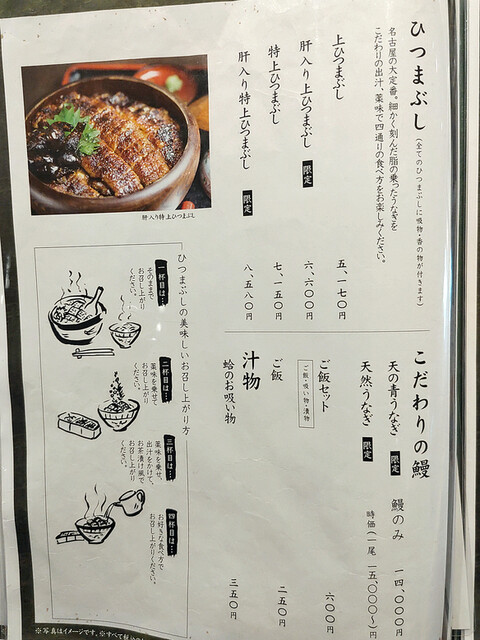 ひつまぶし（全てのひつまぶしに吸物・香の物が付きます）
名古屋の大定番。細かく刻んだ脂の乗ったうなぎを
こだわりの出汁、薬味で四通りの食べ方をお楽しみください。
上ひつまぶし 五、一七〇円
肝入り上ひつまぶし 限定 六、六〇〇円
特上ひつまぶし 七、一五〇円
肝入り特上ひつまぶし 限定 八、五八〇円
肝入り特上ひつまぶし
こだわりの鰻
天の青うなぎ 限定 鰻のみ 一四、〇〇〇円
天然うなぎ 限定 時価（一尾 一五、〇〇〇〜）円
ご飯セット 六〇〇円
ご飯・吸い物・漬物
ご飯 二五〇円
汁物
蛤のお吸い物 三五〇円
ひつまぶしの美味しいお召し上がり方
一杯目は…
そのままで
お召し上がり
ください。
二杯目は…
薬味を乗せて
お召し上がり
ください。
三杯目は…
薬味を乗せ、
出汁をかけて、
お茶漬け風で
お召し上がり
ください。
四杯目は…
お好きな食べ方で
お召し上がりください。
※写真はイメージです。※すべて税込